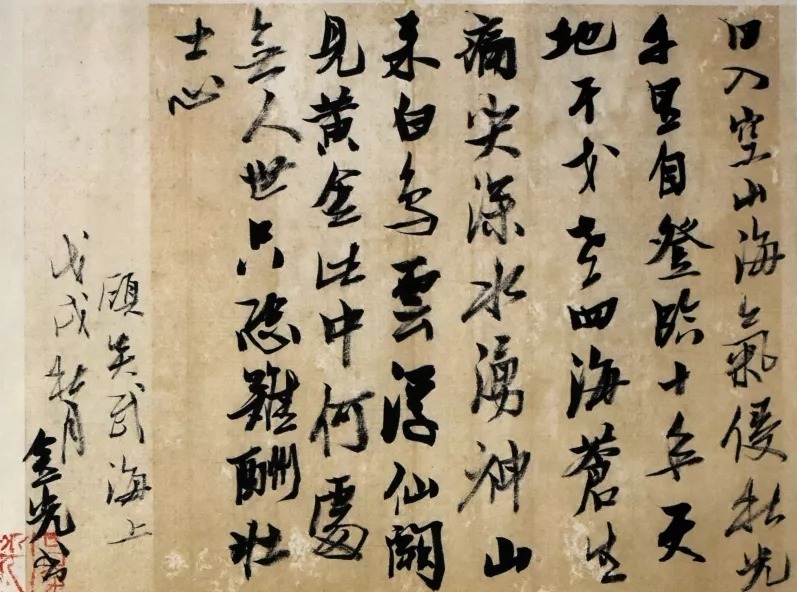 日入空山海氣侵秋光
千里自登臨十年天
地干戈老四海蒼生
痛哭深水湧神山
来白鳥雲浮仙闕
見黄金此中何處
無人世只恐難酬壯
士心
顧炎武海上
戊戌秋月
金光書